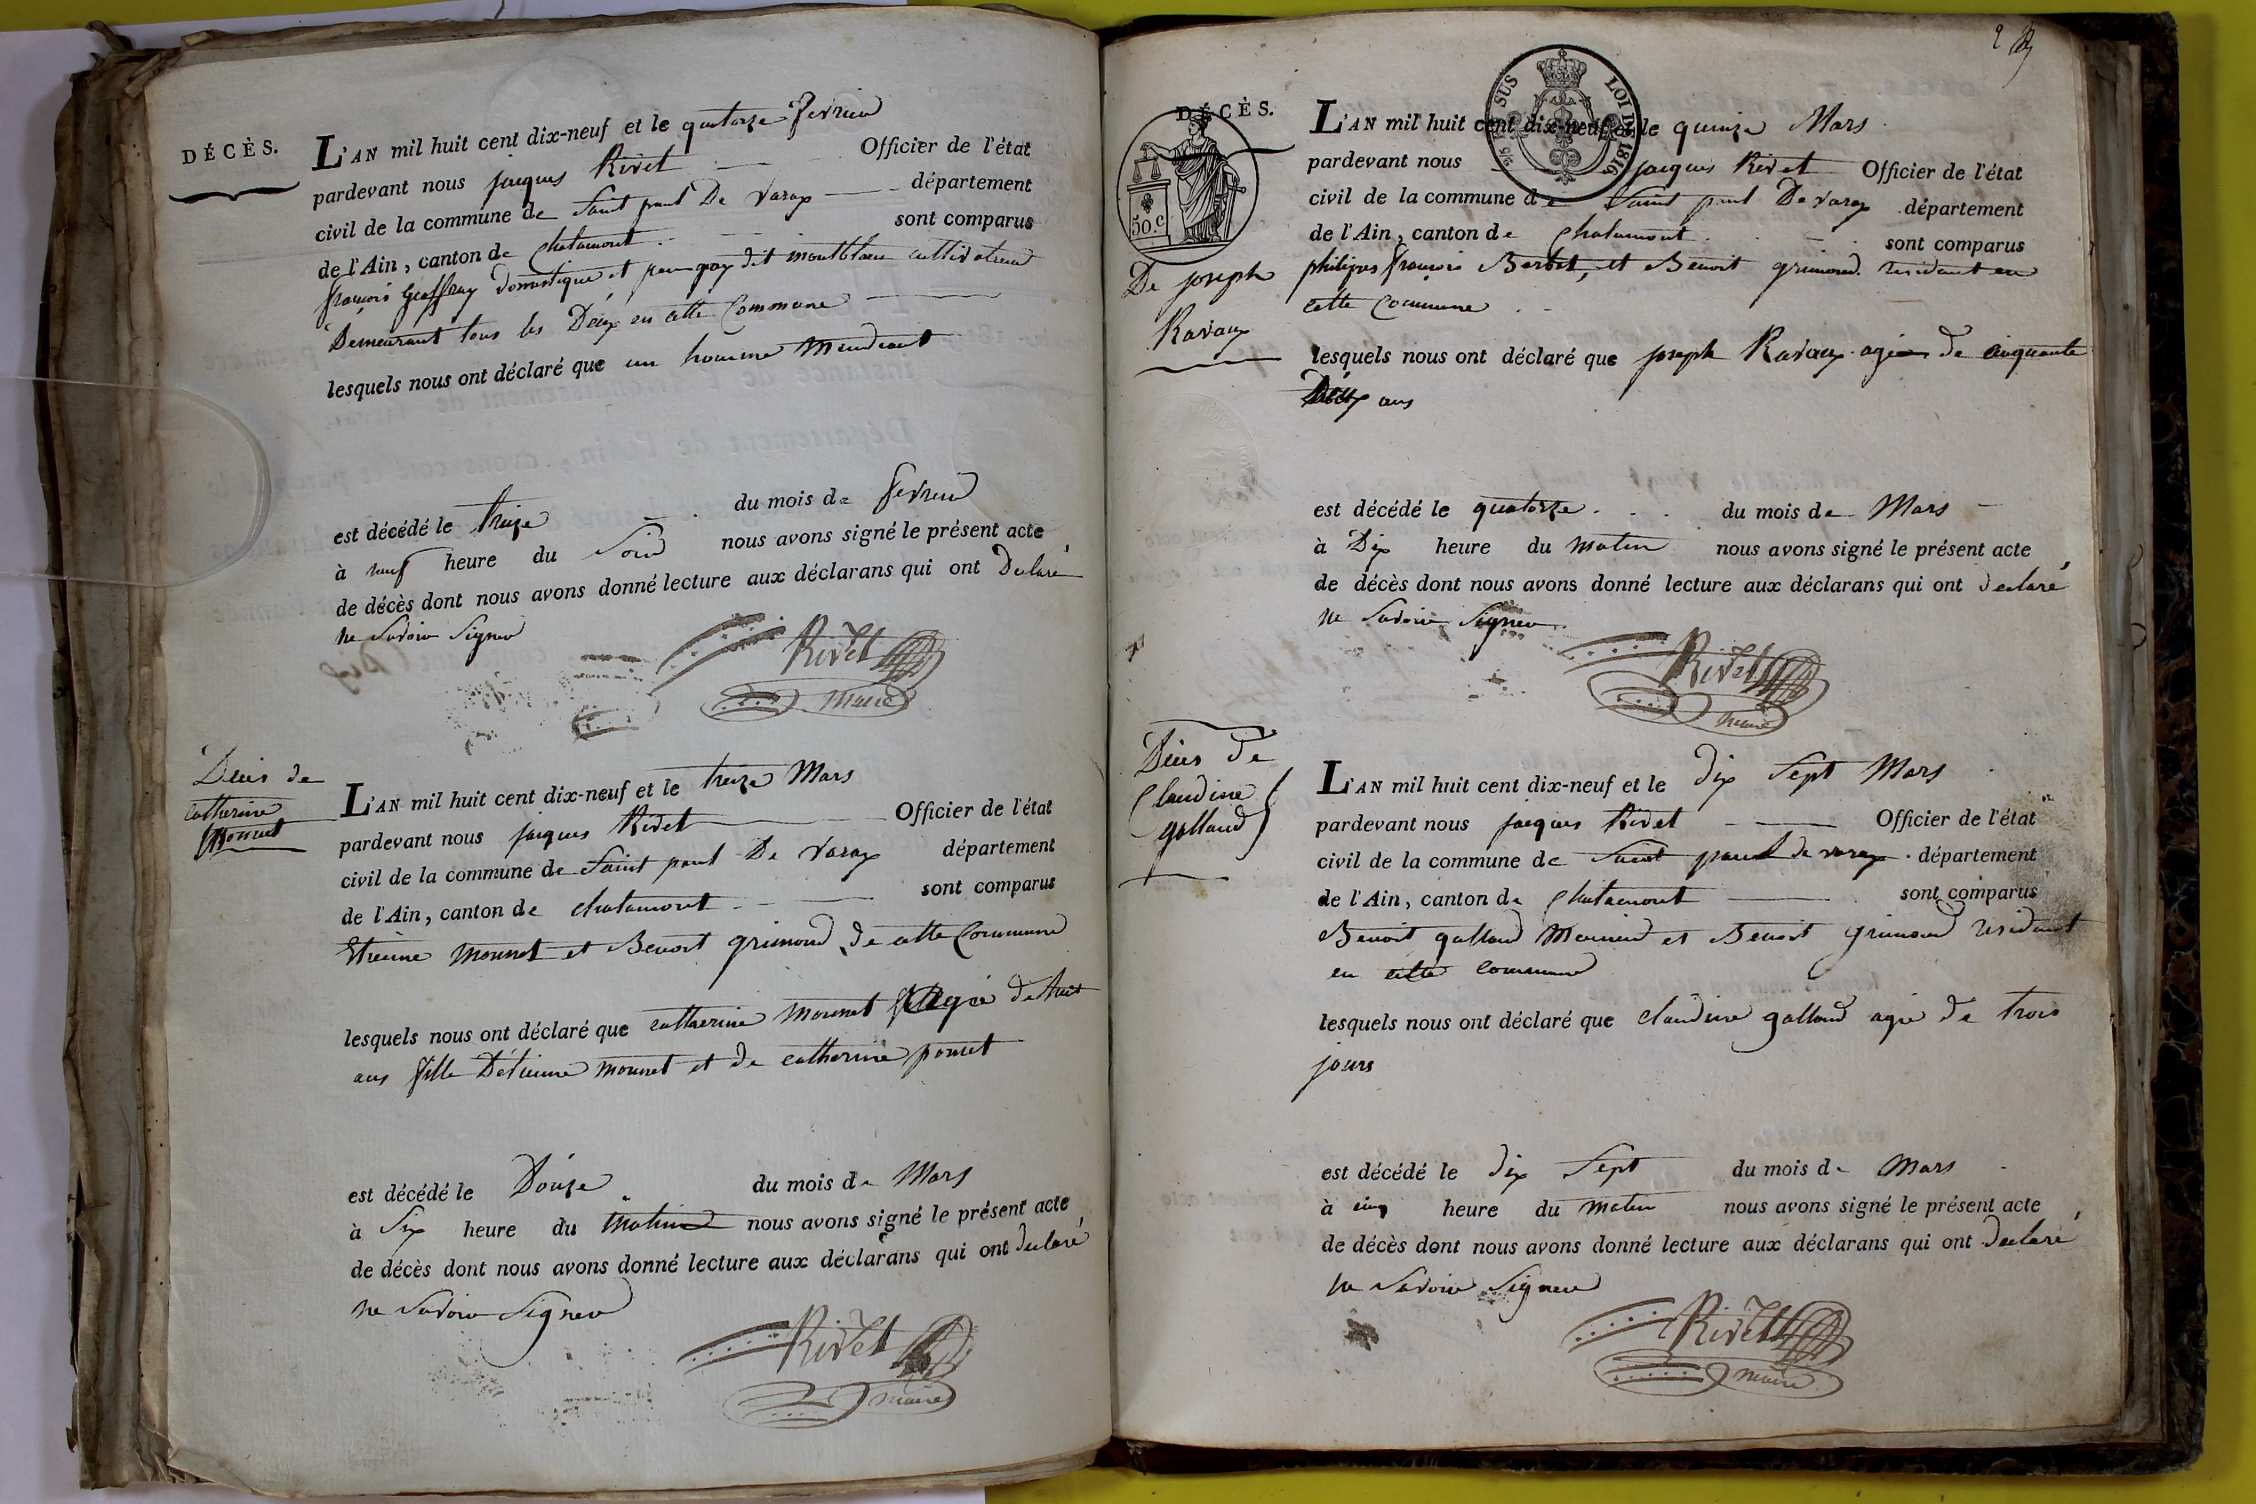 DÉCÈS.
L'AN mil huit cent dix-neuf et le quatorze fevrier
pardevant nous jacques Rivet Officier de l'état
civil de la commune de Saint paul De Varax département
de l'Ain, canton de Chalamont sont comparus
françois Geoffray domestique et jean guy dit montblanc cultivateur
Demeurant tous les Deux en cette Commune
lesquels nous ont déclaré que un homme Mendiant
est décédé le treize du mois de fevrier
à neuf heure du Soir nous avons signé le présent acte
de décès dont nous avons donné lecture aux déclarans qui ont Declaré
ne Savoir Signer
Rivet
maire
Deces de
catherine
Monnet
L'AN mil huit cent dix-neuf et le treize Mars
pardevant nous jacques Rivet Officier de l'état
civil de la commune de Saint paul De Varax département
de l'Ain, canton de chalamont sont comparus
Etienne monnet et Benoit grimond de cette Commune
lesquels nous ont déclaré que catherine monnet agée de huit
ans fille D'étienne monnet et de catherine poncet
est décédé le Douze du mois de Mars
à Six heure du Matin nous avons signé le présent acte
de décès dont nous avons donné lecture aux déclarans qui ont declaré
ne Savoir Signer
Rivet
maire
2
DÉCÈS.
50.C
SUS LOI DE 1816
L'AN mil huit cent dix-neuf et le quinze Mars
pardevant nous jacques Rivet Officier de l'état
civil de la commune de Saint paul De Varax département
de l'Ain, canton de Chalamont sont comparus
De joseph
Ravaux
philipes françois Berbet, et Benoit grimond residant en
cette Commune
lesquels nous ont déclaré que joseph Ravaux agée de cinquante
Deux ans
est décédé le quatorze du mois de Mars
à Dix heure du matin nous avons signé le présent acte
de décès dont nous avons donné lecture aux déclarans qui ont declaré
ne Savoir Signer
Rivet
maire
Deces de
Claudine
galland
L'AN mil huit cent dix-neuf et le dix Sept Mars
pardevant nous jacques Rivet Officier de l'état
civil de la commune de Saint paul de varax département
de l'Ain, canton de Chalamont sont comparus
Benoit galland Meunier et Benoit grimond residant
en cette commune
lesquels nous ont déclaré que claudine galland agée de trois
jours
est décédé le dix Sept du mois de Mars
à cinq heure du matin nous avons signé le présent acte
de décès dont nous avons donné lecture aux déclarans qui ont declaré
ne Savoir Signer
Rivet
maire